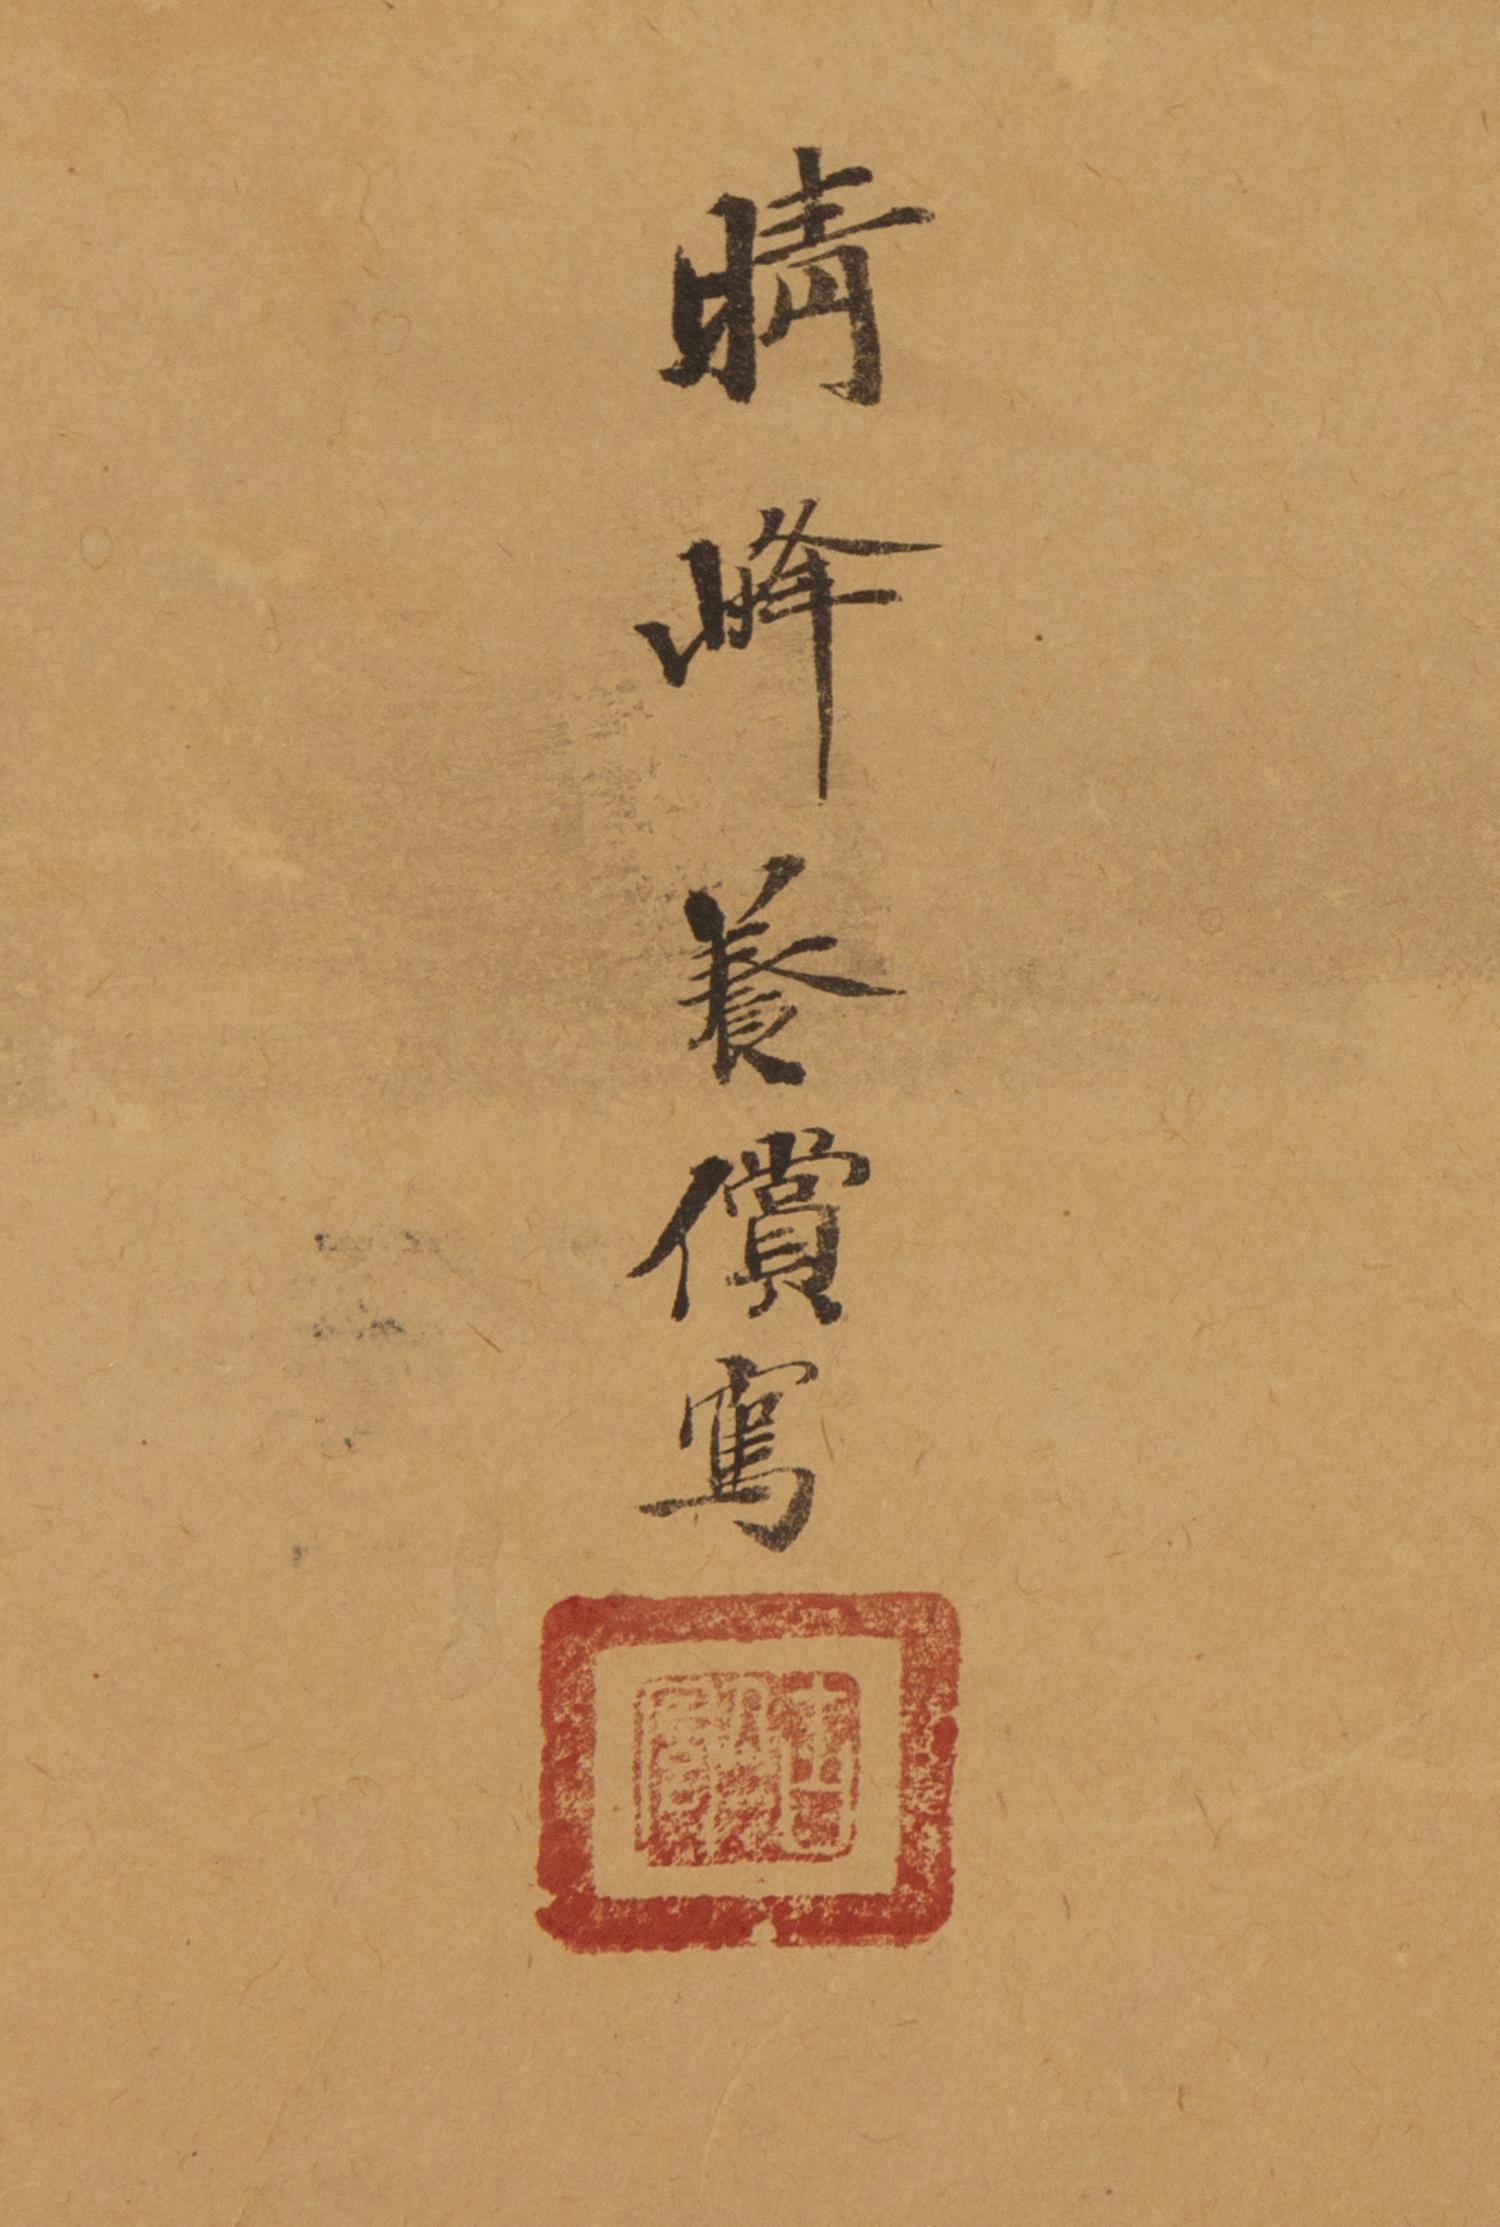 晴峰養償寫